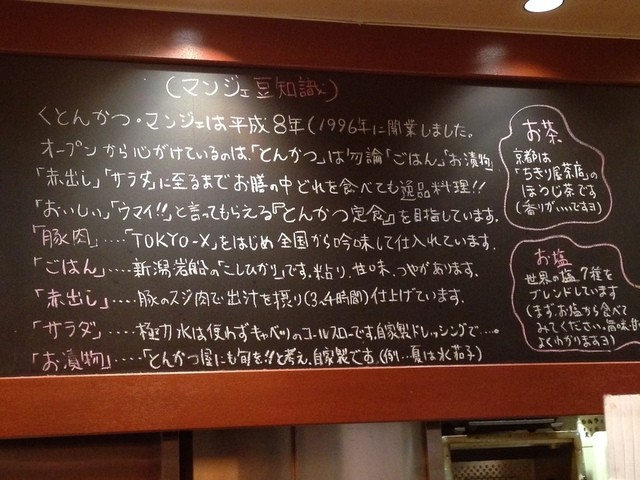 (マンジェ豆知識)
くとんかつ。マンジェは平成8年(1996年に開業しました。
オープンから心がけているのは、「とんかつ」は勿論「ごはん」、「お漬物」
「赤出し」「サラダ」に至るまでお膳の中どれを食べても逸品料理!!
「おいしい」「ウマイ!!」と言ってもらえる『とんかつ定食』を目指しています。
「豚肉」....「TOKYO-X」をはじめ全国から吟味して仕入れています。
「ごはん」....新潟岩船の「こしひかり」です。粘り、甘味、つやがあります。
「赤出し」....豚のスジ肉で出汁を摂り(3、4時間)仕上げています。
「サラダ」....極力水は使わずキャベツのコールスローです。自家製ドレッシングで...。
「お漬物」....「とんかつ屋にも旬を!!」と考え、自家製です。(例...夏は水茄子)
お茶
京都は
「ちきり屋茶店」の
ほうじ茶です
(香りがいいですヨ)
お塩
世界の塩7種を
ブレンドしています
(まずお塩から食べて
みてください。旨味、甘
よくわかりますヨ)